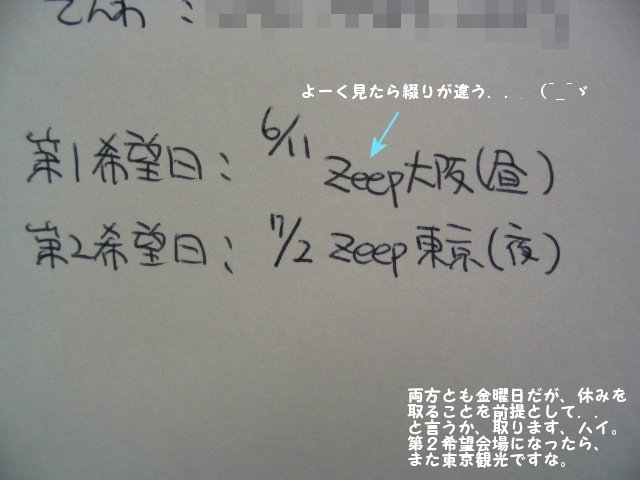 でんわ：
よーく見たら綴りが違う．．． (￣_￣ゞ
第1希望日： 6/11 Zeep大阪(昼)
第2希望日： 7/2 Zeep東京(夜)
両方とも金曜日だが、休みを
取ることを前提として．．
と言うか、取ります、ハイ。
第２希望会場になったら、
また東京観光ですな。